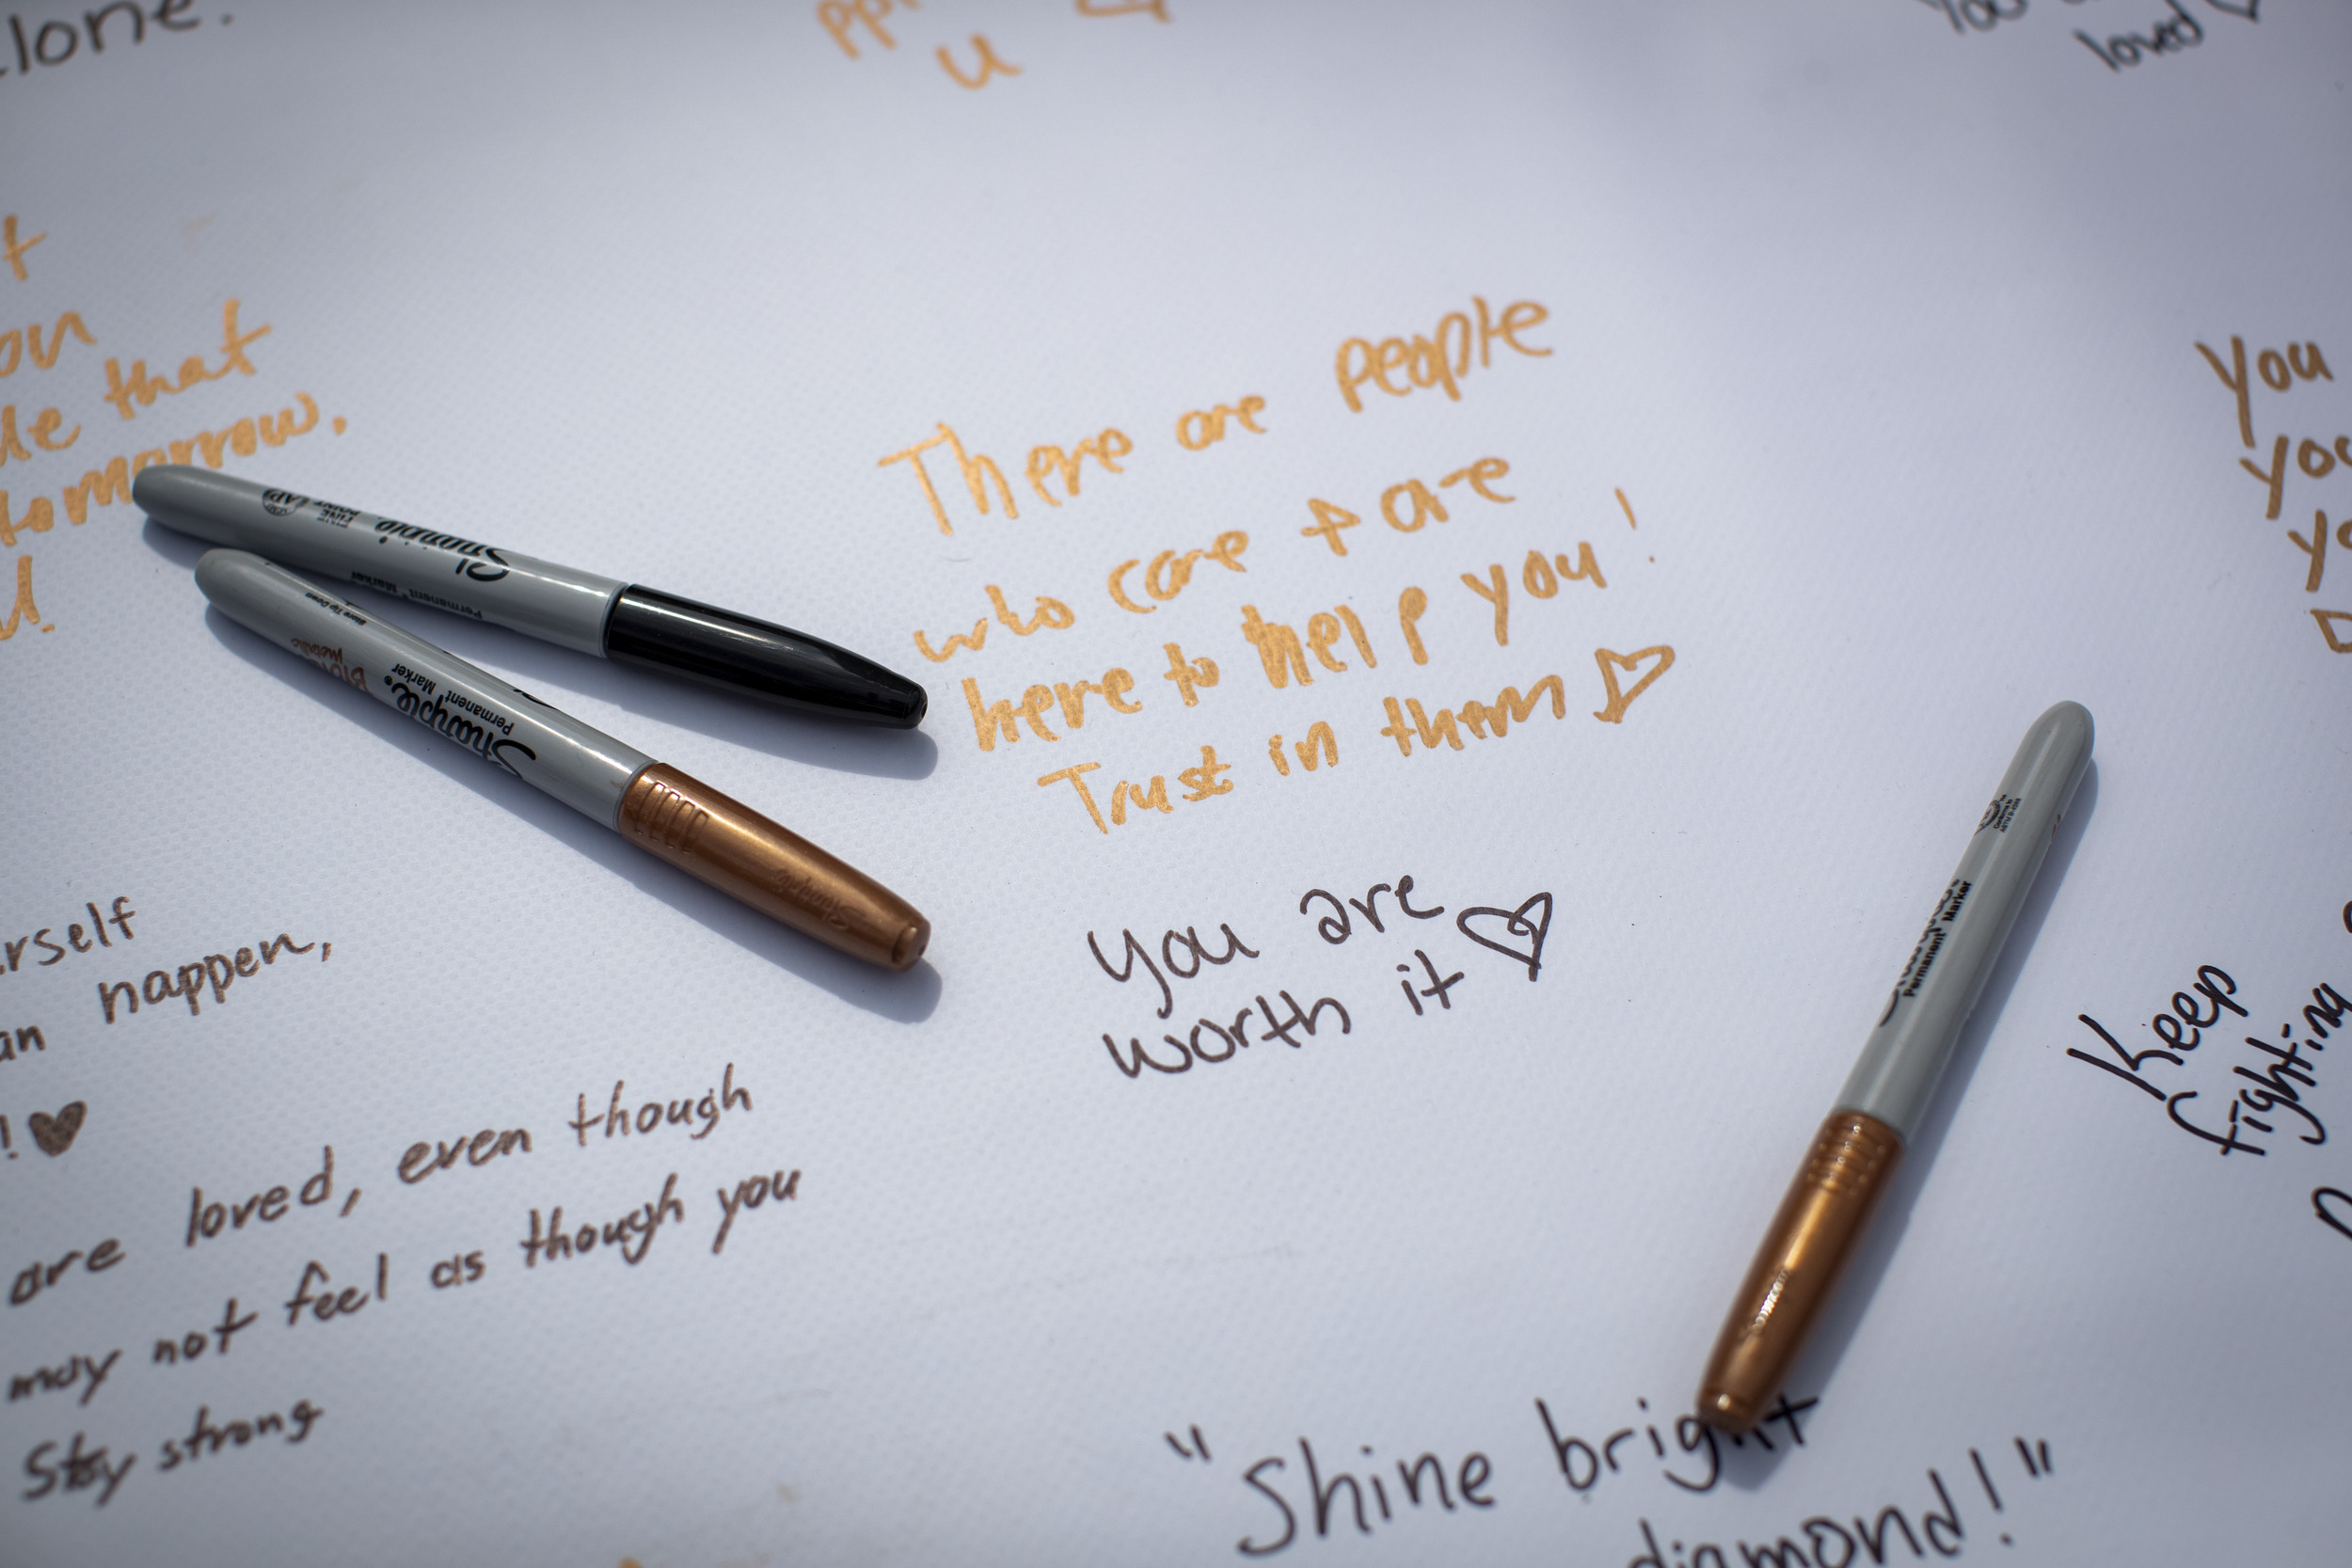 lone.
u
You
loved
t
on
that
tomorrow.
There are people
who care + are
here to help you!
Trust in them
You
you
Sharpie
FINE
Permanent Marker
Sharpie
Permanent Marker
You are
worth it
rself
an happen,
!
are loved, even though
may not feel as though you
Stay strong
Permanent Marker
Keep
fighting
"Shine bright
diamond!"